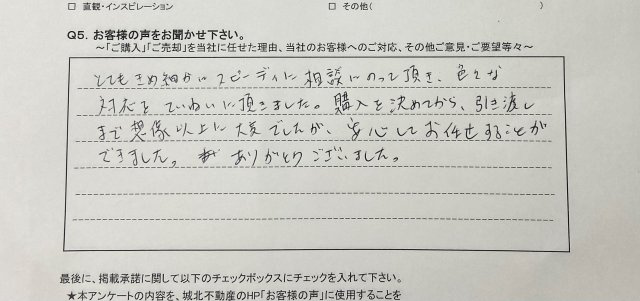 □ 直観・インスピレーション □ その他( )
Q5. お客様の声をお聞かせ下さい。
～「ご購入」「ご売却」を当社に任せた理由、当社のお客様へのご対応、その他ご意見・ご要望等々～
とてもきめ細かいスピーディに相談にのって頂き、色々な
対応をていねいに頂きました。購入を決めてから、引き渡し
まで想像以上に大変でしたが、安心してお任せすることが
できました。ありがとうございました。
最後に、掲載承諾に関して以下のチェックボックスにチェックを入れて下さい。
★本アンケートの内容を、城北不動産のHP「お客様の声」に使用することを